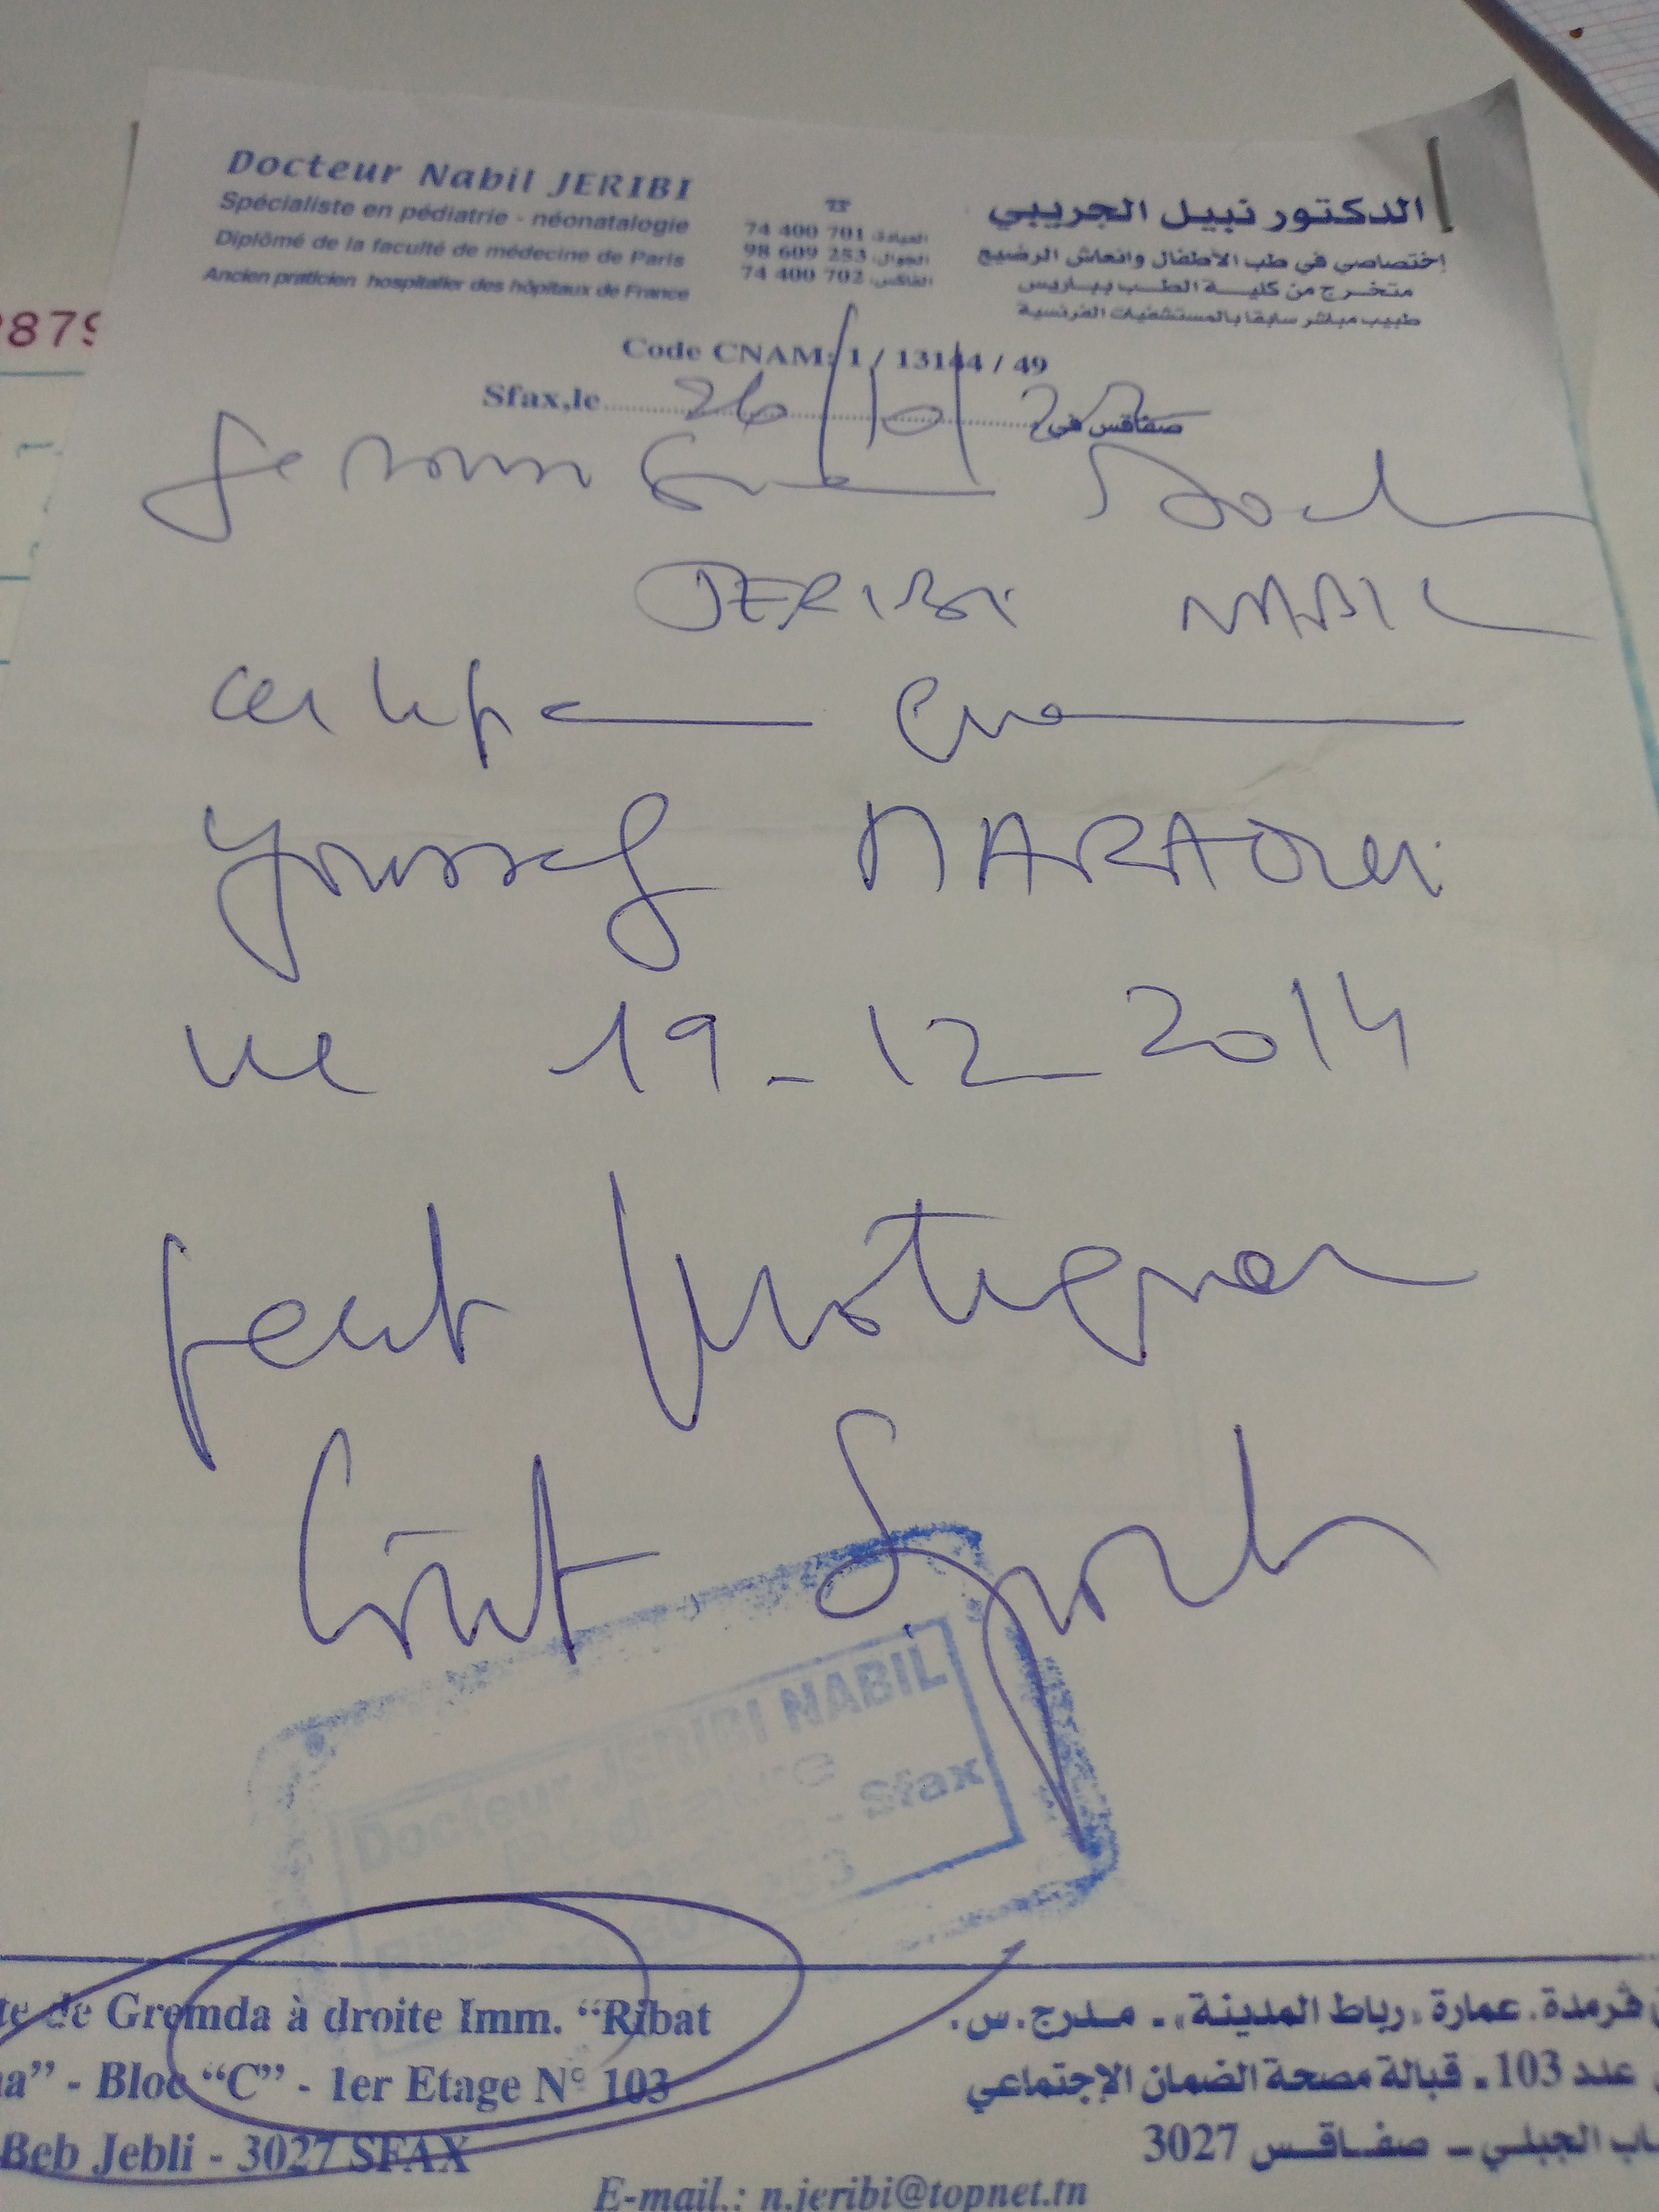 Docteur Nabil JERIBI
Spécialiste en pédiatrie - néonatalogie
Diplômé de la faculté de médecine de Paris
Ancien praticien hospitalier des hôpitaux de France
☎
العيادة: 74 400 701
الجوال: 98 609 253
الفاكس: 74 400 702
الدكتور نبيل الجريبي
إختصاصي في طب الأطفال وانعاش الرضيع
متخرج من كلية الطب بباريس
طبيب مباشر سابقا بالمستشفيات الفرنسية
Code CNAM: 1 / 13144 / 49
Sfax,le 26/10/22 صفاقس في
Je Doct
JERIBI NABIL
certifie que
Youssef MARAOUI
né 19-12-2014
peut pratiquer
tout sport
Docteur JERIBI NABIL
Pédiatre
- Sfax
879
te de Gremda à droite Imm. “Ribat
a” - Bloc “C” - 1er Etage N° 103
Beb Jebli - 3027 SFAX
ڨرمدة. عمارة «رباط المدينة» - مدرج. س.
عدد 103 - قبالة مصحة الضمان الإجتماعي
اب الجبلي - صفاقس 3027
E-mail.: n.jeribi@topnet.tn